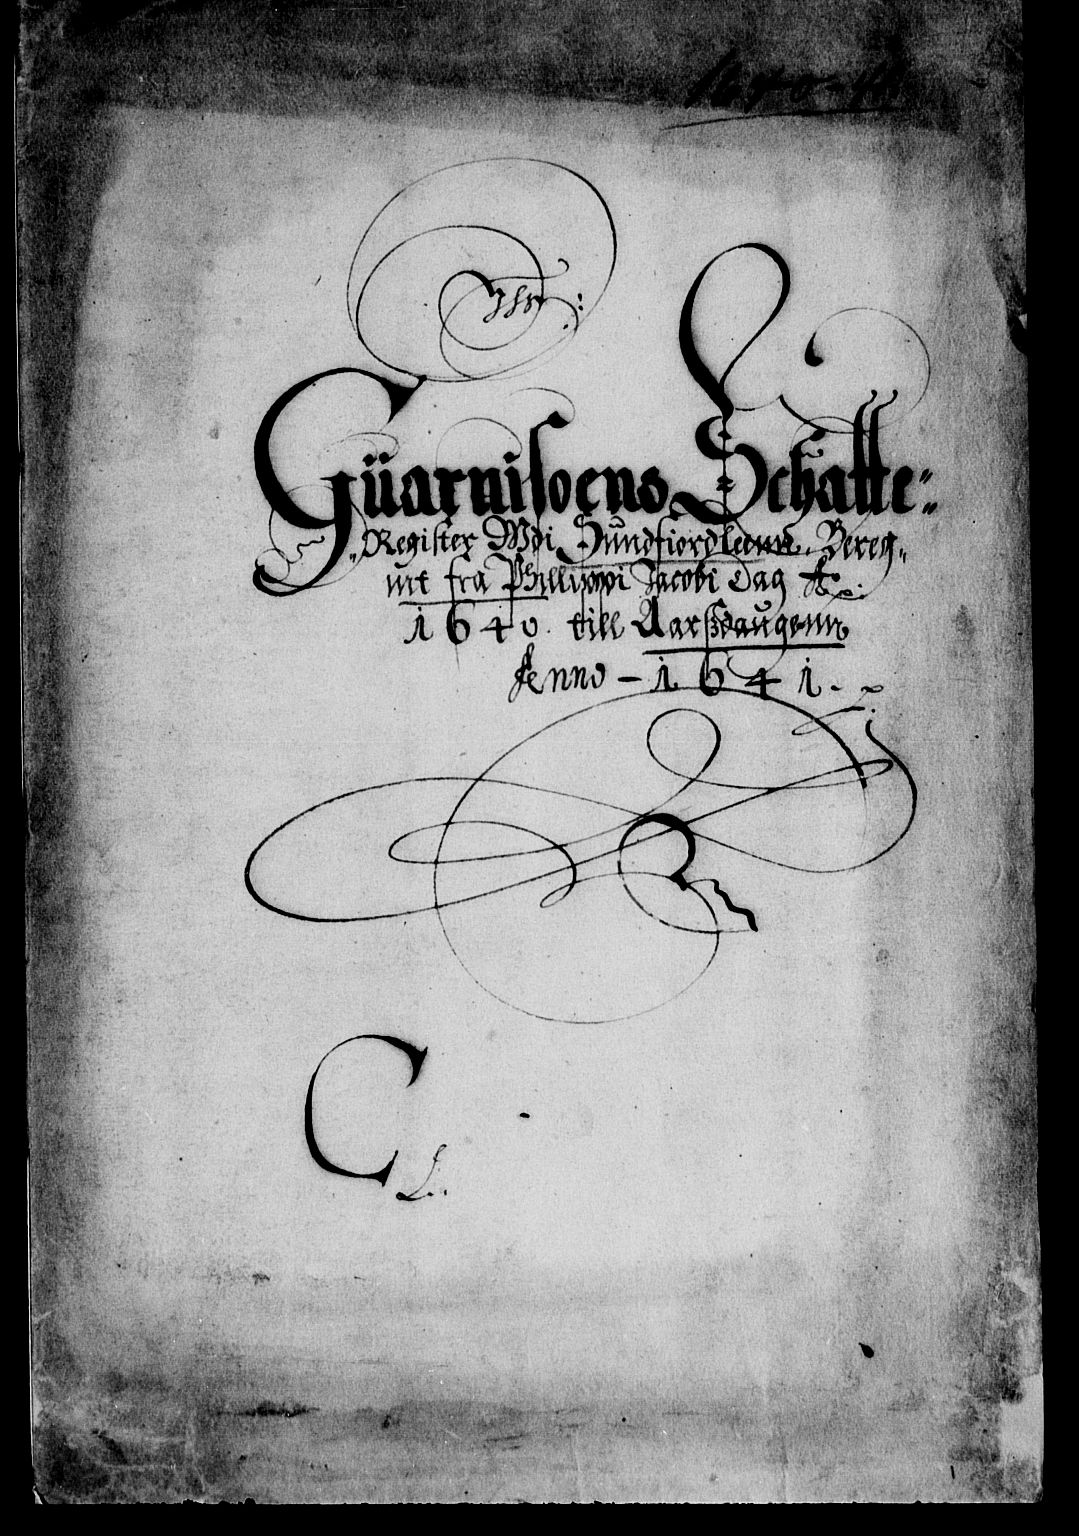 1640-41
Jhs:
Guarnisoens Schatte=
Register Wdi Sundfiordleenn, Bereg=
nit fra Phillippi Jacobi Dag Ao.
1640. till Aarßdaugenn
Anno - 1641.
C